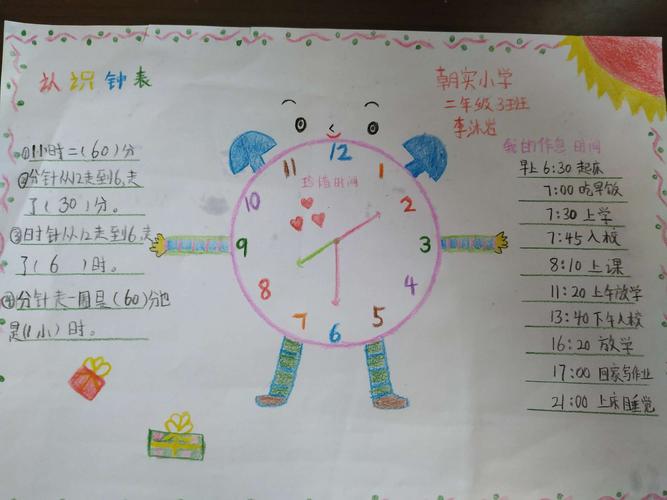 认识钟表
①1小时=(60)分
②分针从12走到6,走
了(30)分。
③时针从12走到6,走
了(6)时。
④分针走一圈是(60)分也
是(1小)时。
珍惜时间
12
1
2
3
4
5
6
7
8
9
10
11
朝实小学
二年级3班
李沐岩
我的作息时间
早上6:30起床
7:00吃早饭
7:30上学
7:45入校
8:10上课
11:20上午放学
13:40下午入校
16:20放学
17:00回家写作业
21:00上床睡觉